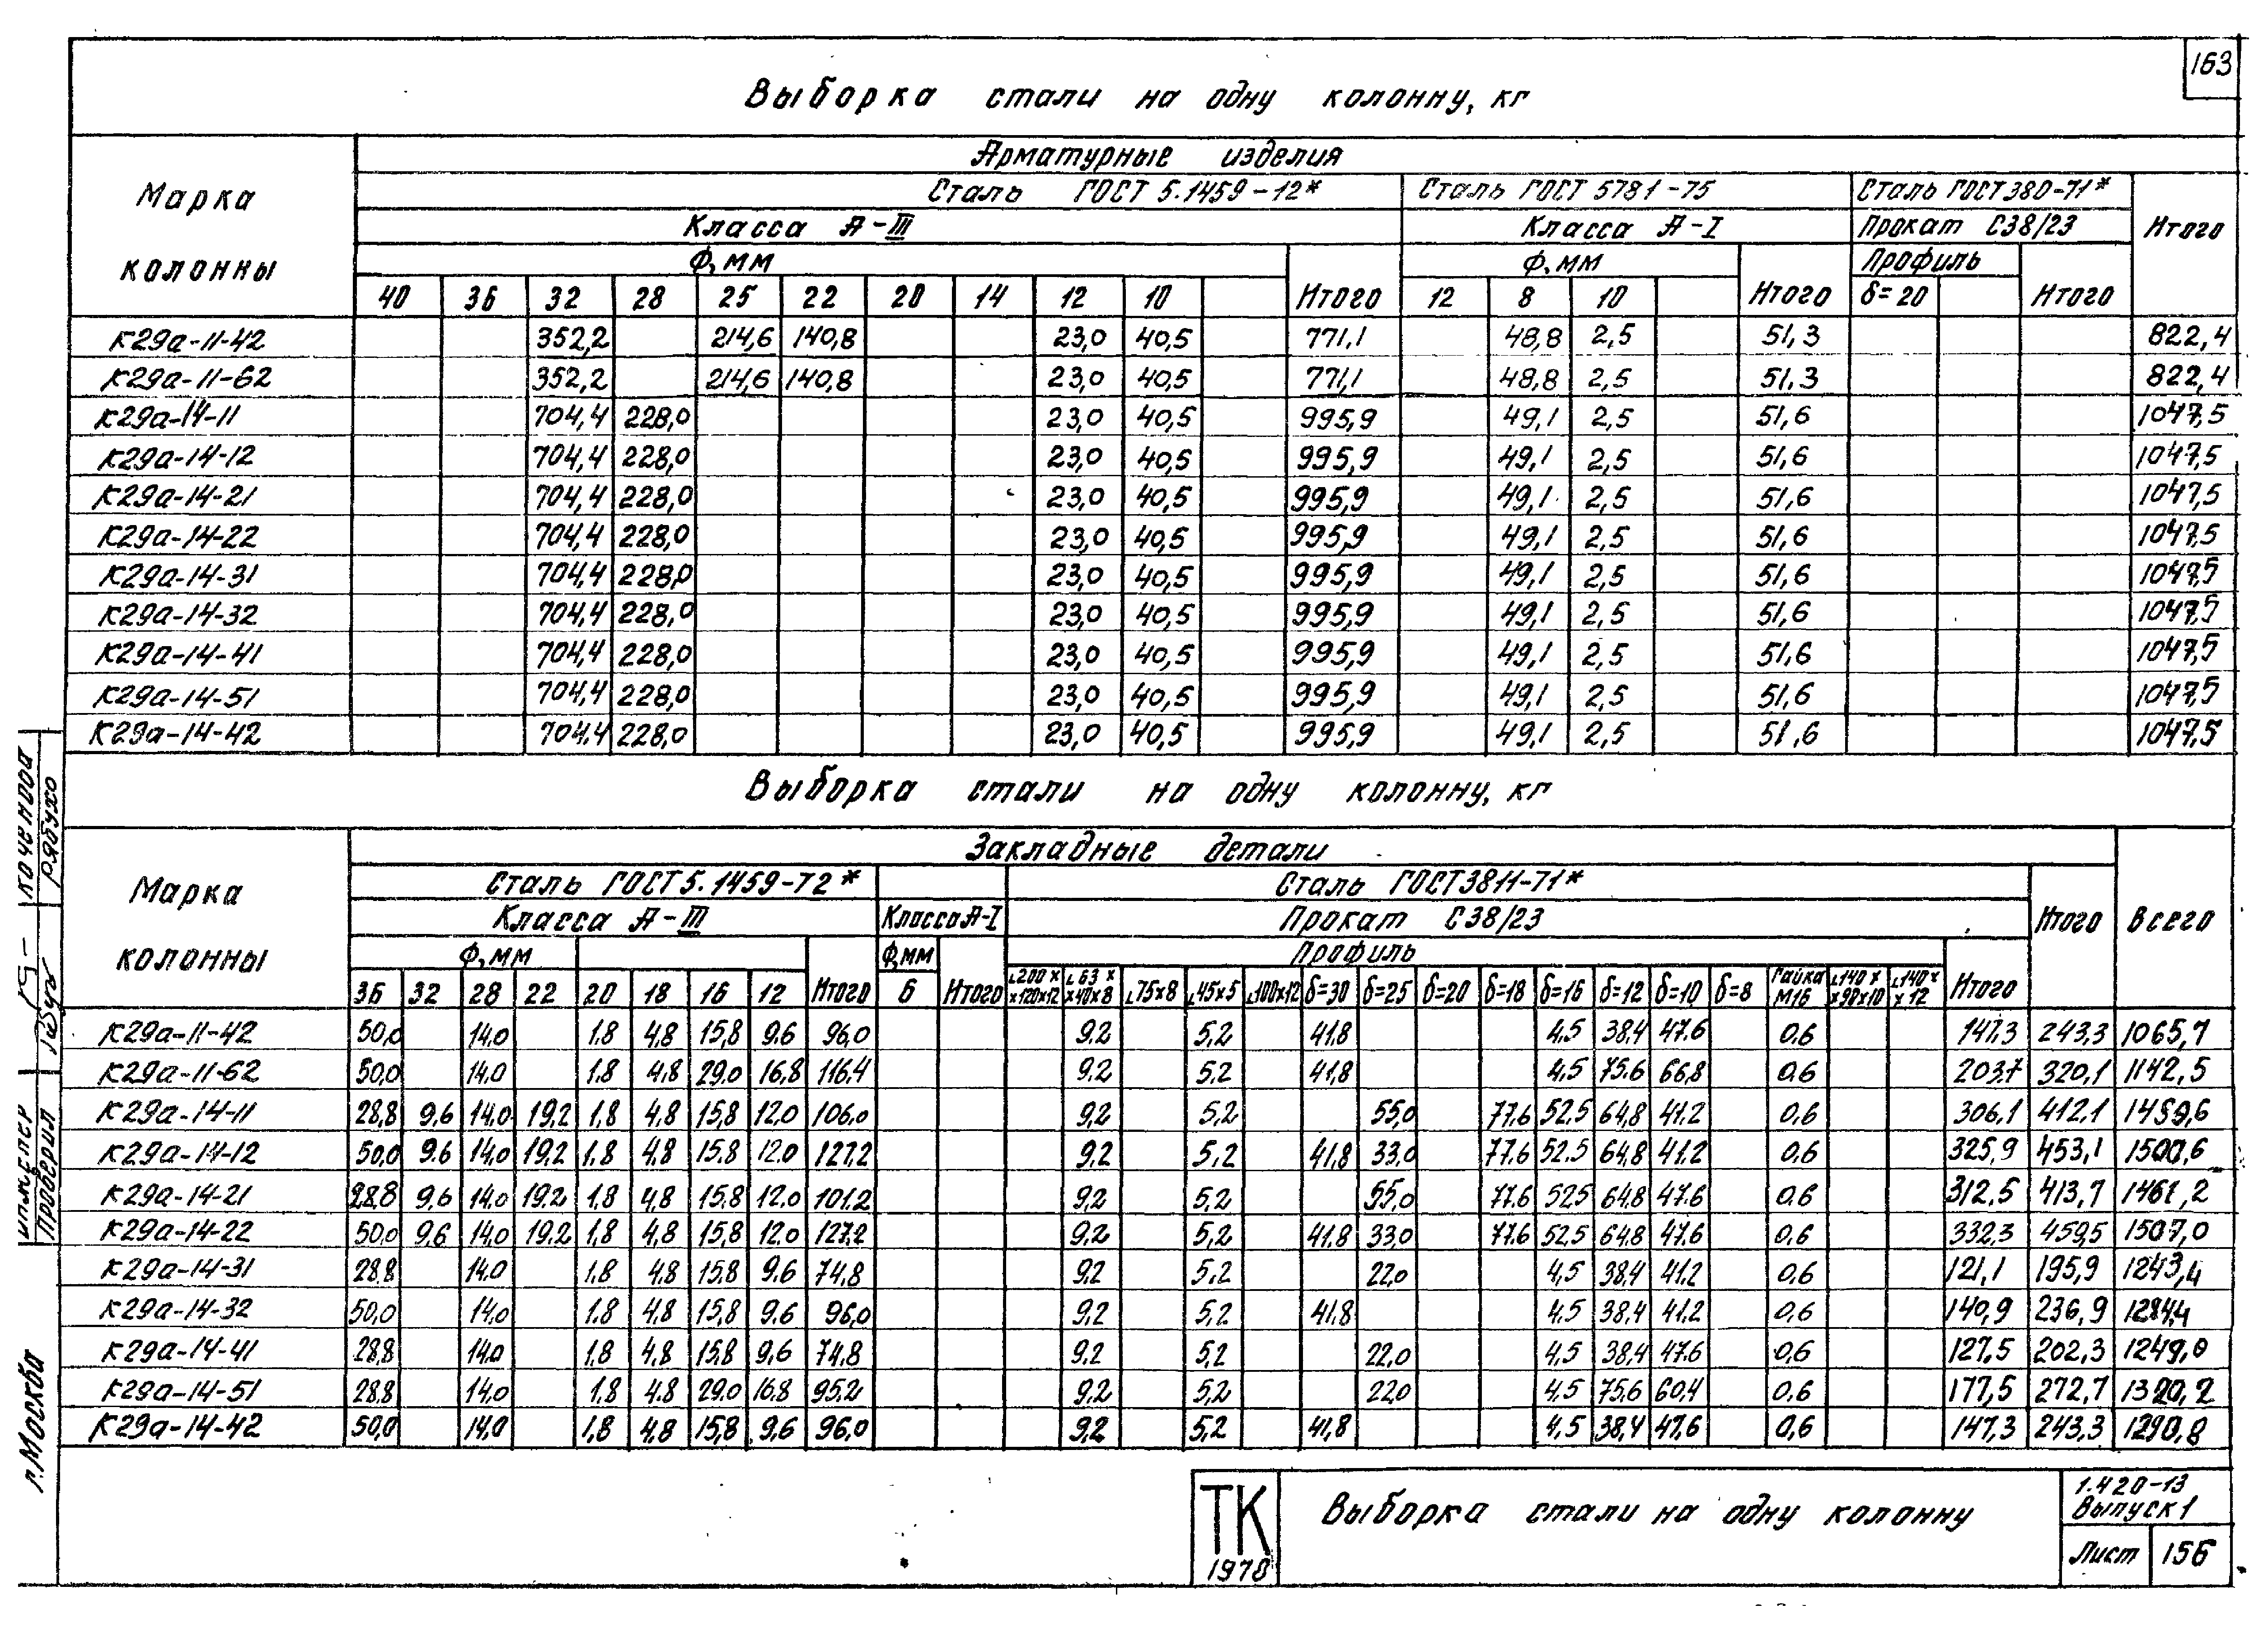 163
Выборка стали на одну колонну, кг
Марка колонны
Арматурные изделия
Сталь ГОСТ 5.1459-12* Сталь ГОСТ 5781-75 Сталь ГОСТ 380-71* Итого
Класса А-III Класса А-I Прокат С38/23
Ф, мм Итого Ф, мм Итого Профиль Итого
40 36 32 28 25 22 20 14 12 10 12 8 10 δ=20
К29а-11-42 352,2 214,6 140,8 23,0 40,5 771,1 48,8 2,5 51,3 822,4
К29а-11-62 352,2 214,6 140,8 23,0 40,5 771,1 48,8 2,5 51,3 822,4
К29а-14-11 704,4 228,0 23,0 40,5 995,9 49,1 2,5 51,6 1047,5
К29а-14-12 704,4 228,0 23,0 40,5 995,9 49,1 2,5 51,6 1047,5
К29а-14-21 704,4 228,0 23,0 40,5 995,9 49,1 2,5 51,6 1047,5
К29а-14-22 704,4 228,0 23,0 40,5 995,9 49,1 2,5 51,6 1047,5
К29а-14-31 704,4 228,0 23,0 40,5 995,9 49,1 2,5 51,6 1047,5
К29а-14-32 704,4 228,0 23,0 40,5 995,9 49,1 2,5 51,6 1047,5
К29а-14-41 704,4 228,0 23,0 40,5 995,9 49,1 2,5 51,6 1047,5
К29а-14-51 704,4 228,0 23,0 40,5 995,9 49,1 2,5 51,6 1047,5
К29а-14-42 704,4 228,0 23,0 40,5 995,9 49,1 2,5 51,6 1047,5
Выборка стали на одну колонну, кг
Марка колонны
Закладные детали Всего
Сталь ГОСТ 5.1459-72* Сталь ГОСТ 3811-71* Итого
Класса А-III Класса А-I Прокат С38/23
Ф, мм Итого Ф, мм Итого Профиль Итого
36 32 28 22 20 18 16 12 6 ∟200x x120x12 ∟63x x40x8 ∟75x8 ∟45x5 ∟100x12 δ=30 δ=25 δ=20 δ=18 δ=16 δ=12 δ=10 δ=8 Гайка М16 ∟140x x90x10 ∟140x x12
К29а-11-42 50,0 14,0 1,8 4,8 15,8 9,6 96,0 9,2 5,2 41,8 4,5 38,4 47,6 0,6 147,3 243,3 1065,7
К29а-11-62 50,0 14,0 1,8 4,8 29,0 16,8 116,4 9,2 5,2 41,8 4,5 75,6 66,8 0,6 203,7 320,1 1142,5
К29а-14-11 28,8 9,6 14,0 19,2 1,8 4,8 15,8 12,0 106,0 9,2 5,2 55,0 77,6 52,5 64,8 41,2 0,6 306,1 412,1 1459,6
К29а-14-12 50,0 9,6 14,0 19,2 1,8 4,8 15,8 12,0 127,2 9,2 5,2 41,8 33,0 77,6 52,5 64,8 41,2 0,6 325,9 453,1 1500,6
К29а-14-21 28,8 9,6 14,0 19,2 1,8 4,8 15,8 12,0 101,2 9,2 5,2 55,0 77,6 52,5 64,8 47,6 0,6 312,5 413,7 1461,2
К29а-14-22 50,0 9,6 14,0 19,2 1,8 4,8 15,8 12,0 127,2 9,2 5,2 41,8 33,0 77,6 52,5 64,8 47,6 0,6 332,3 459,5 1507,0
К29а-14-31 28,8 14,0 1,8 4,8 15,8 9,6 74,8 9,2 5,2 22,0 4,5 38,4 41,2 0,6 121,1 195,9 1243,4
К29а-14-32 50,0 14,0 1,8 4,8 15,8 9,6 96,0 9,2 5,2 41,8 4,5 38,4 41,2 0,6 140,9 236,9 1284,4
К29а-14-41 28,8 14,0 1,8 4,8 15,8 9,6 74,8 9,2 5,2 22,0 4,5 38,4 47,6 0,6 127,5 202,3 1249,0
К29а-14-51 28,8 14,0 1,8 4,8 29,0 16,8 95,2 9,2 5,2 22,0 4,5 75,6 60,4 0,6 177,5 272,7 1320,2
К29а-14-42 50,0 14,0 1,8 4,8 15,8 9,6 96,0 9,2 5,2 41,8 4,5 38,4 47,6 0,6 147,3 243,3 1290,8
ТК 1978
Выборка стали на одну колонну
1.420-13
Выпуск 1
Лист 156
Рябухо
Проверил
г. Москва